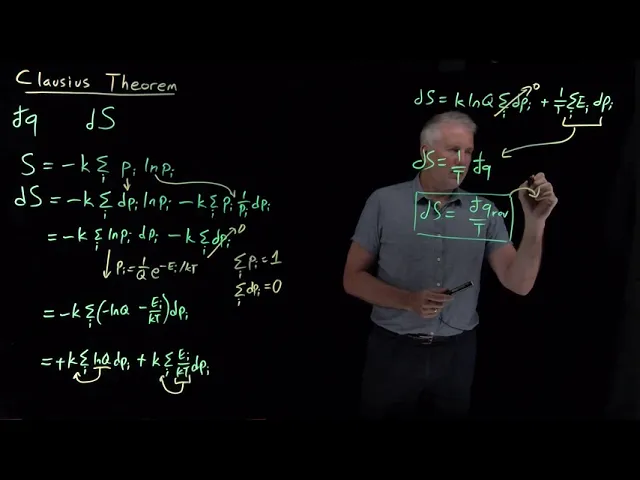 Clausius Theorem
đq dS
S = -k Σᵢ pᵢ ln pᵢ
dS = -k Σᵢ dpᵢ ln pᵢ - k Σᵢ pᵢ 1/pᵢ dpᵢ
= -k Σᵢ ln pᵢ dpᵢ - k Σᵢ dpᵢ 0
pᵢ = 1/Q e^(-Eᵢ/kT)
Σᵢ pᵢ = 1
Σᵢ dpᵢ = 0
= -k Σᵢ (-lnQ - Eᵢ/kT) dpᵢ
= +k Σᵢ lnQ dpᵢ + k Σᵢ Eᵢ/kT dpᵢ
dS = k lnQ Σᵢ dpᵢ 0 + 1/T Σᵢ Eᵢ dpᵢ
dS = 1/T đq
dS = đq_rev/T